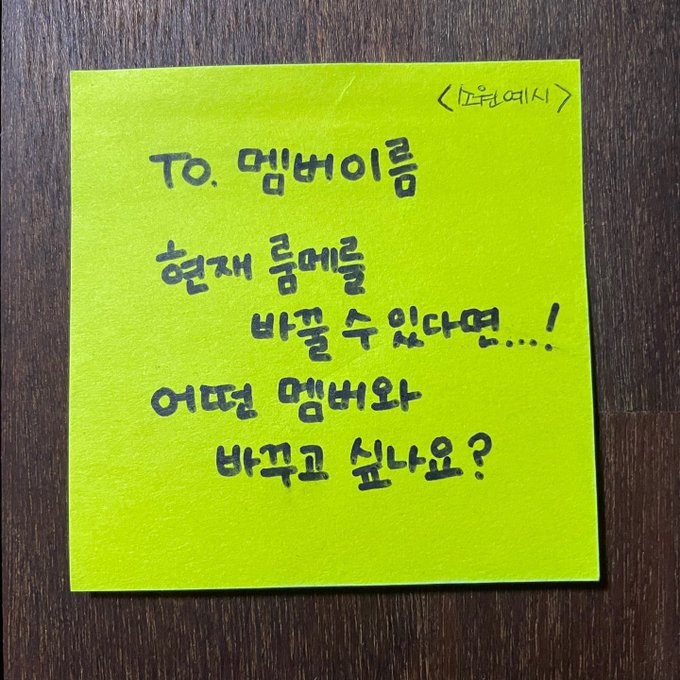 <소원예시>
TO. 멤버이름
현재 룸메를
바꿀 수 있다면...!
어떤 멤버와
바꾸고 싶나요?